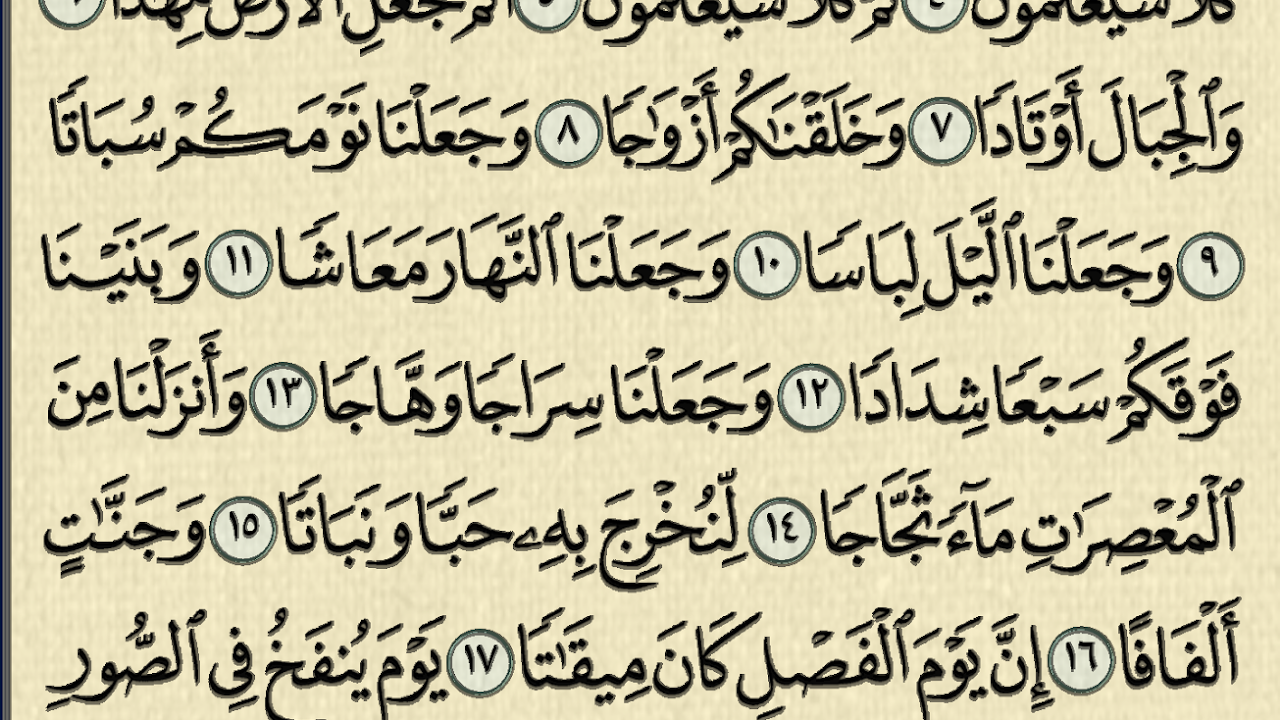 كَلَّا سَيَعْلَمُونَ ٤ ثُمَّ كَلَّا سَيَعْلَمُونَ ٥ أَلَمْ نَجْعَلِ ٱلْأَرْضَ مِهَٰدًا ٦
وَٱلْجِبَالَ أَوْتَادًا ٧ وَخَلَقْنَٰكُمْ أَزْوَٰجًا ٨ وَجَعَلْنَا نَوْمَكُمْ سُبَاتًا
٩ وَجَعَلْنَا ٱلَّيْلَ لِبَاسًا ١٠ وَجَعَلْنَا ٱلنَّهَارَ مَعَاشًا ١١ وَبَنَيْنَا
فَوْقَكُمْ سَبْعًا شِدَادًا ١٢ وَجَعَلْنَا سِرَاجًا وَهَّاجًا ١٣ وَأَنزَلْنَا مِنَ
ٱلْمُعْصِرَٰتِ مَآءً ثَجَّاجًا ١٤ لِّنُخْرِجَ بِهِۦ حَبًّا وَنَبَاتًا ١٥ وَجَنَّٰتٍ
أَلْفَافًا ١٦ إِنَّ يَوْمَ ٱلْفَصْلِ كَانَ مِيقَٰتًا ١٧ يَوْمَ يُنفَخُ فِى ٱلصُّورِ